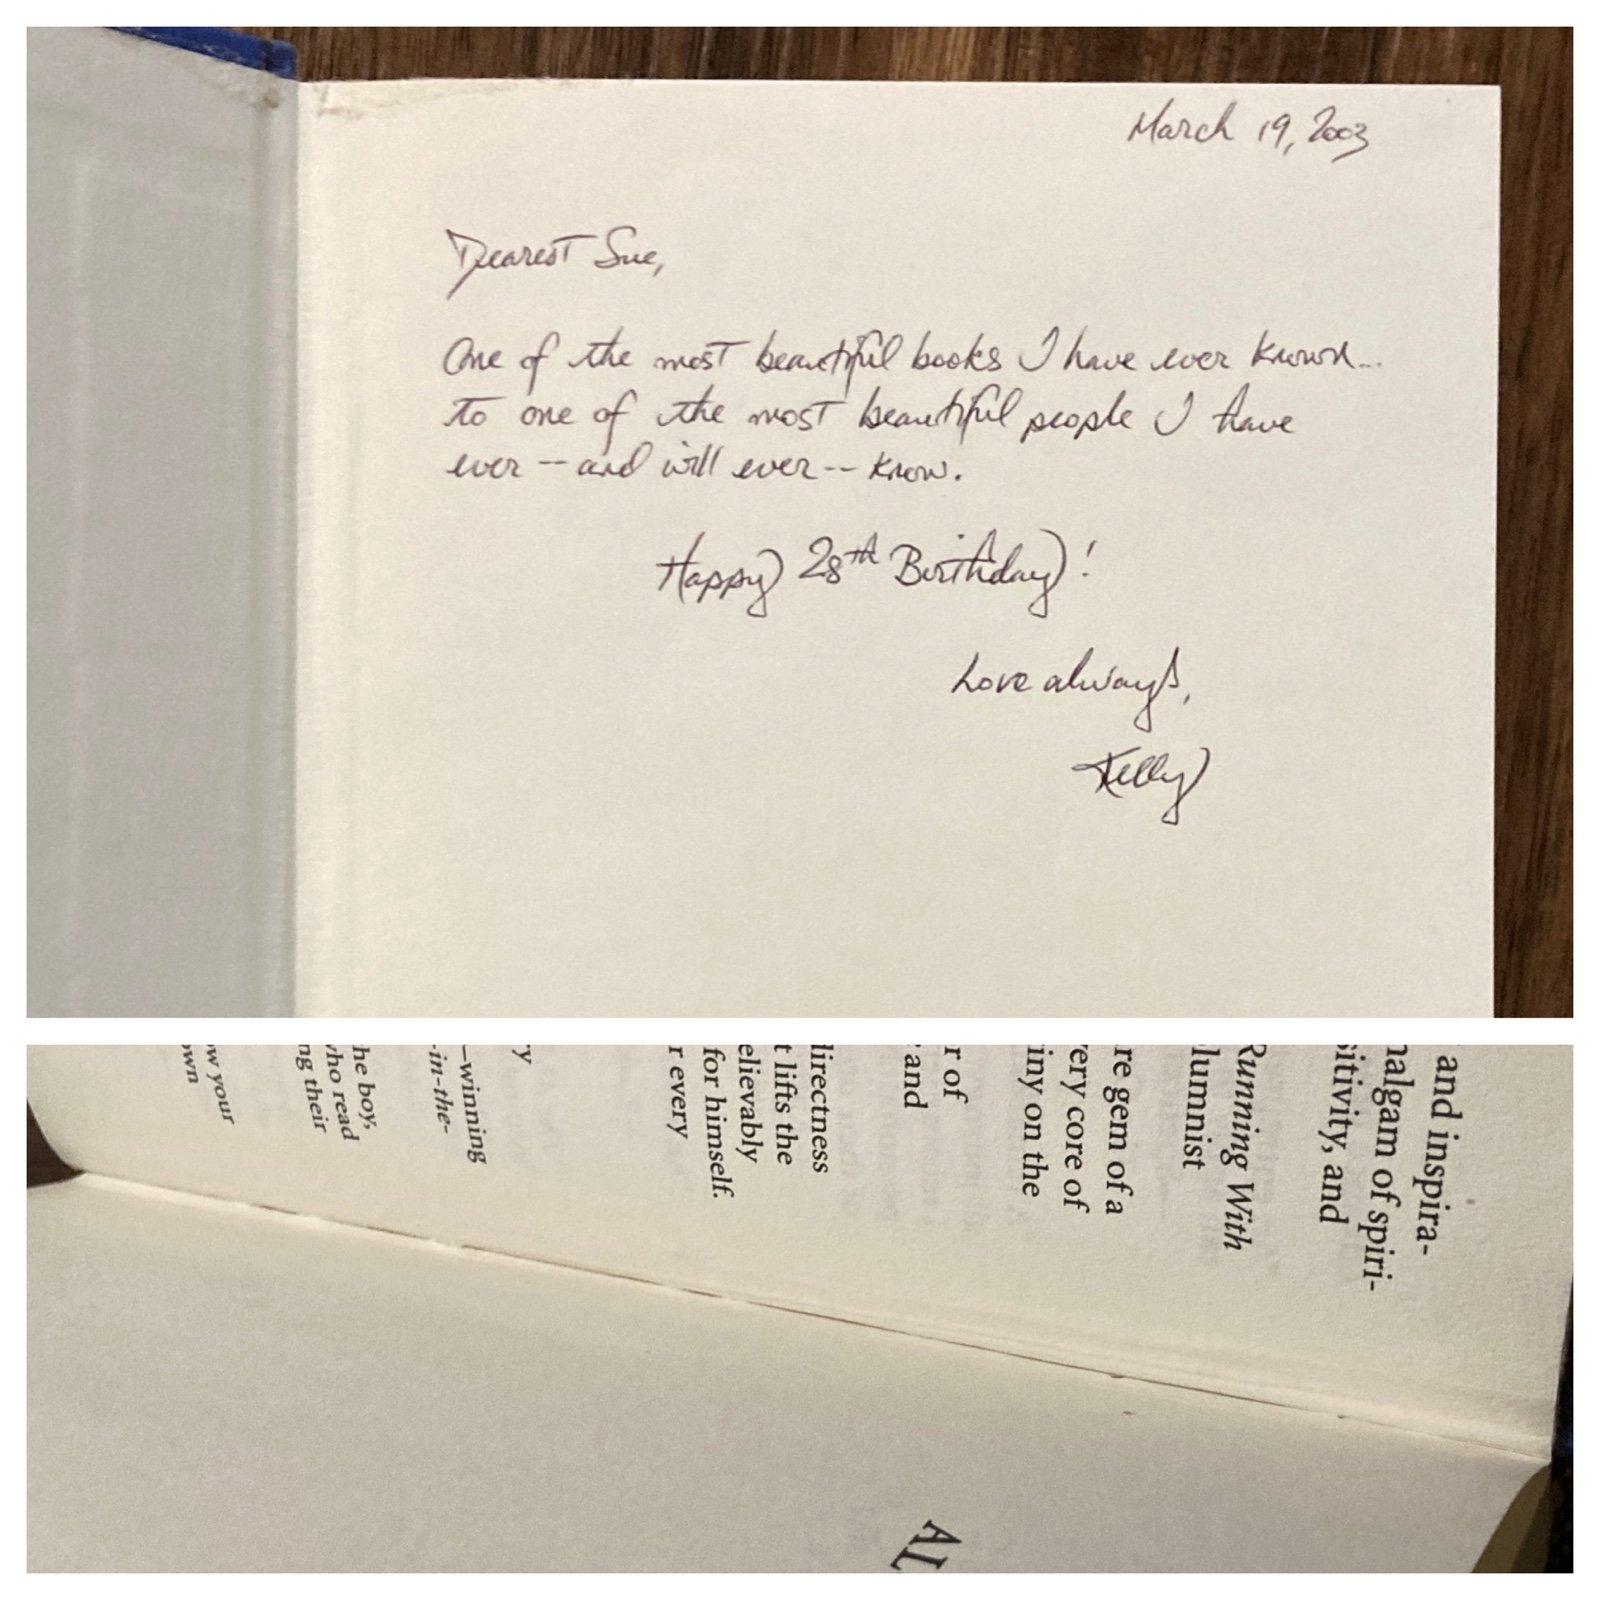 March 19, 2003
Dearest Sue,
One of the most beautiful books I have ever known...
to one of the most beautiful people I have
ever -- and will ever -- know.
Happy 28th Birthday!
Love always,
Kelly
and inspira-
nalgam of spiri-
sitivity, and
Running With
lumnist
re gem of a
very core of
iny on the
r of
and
directness
t lifts the
elievably
for himself.
r every
ry
—winning
-in-the-
he boy,
who read
ng their
ow your
own
AL